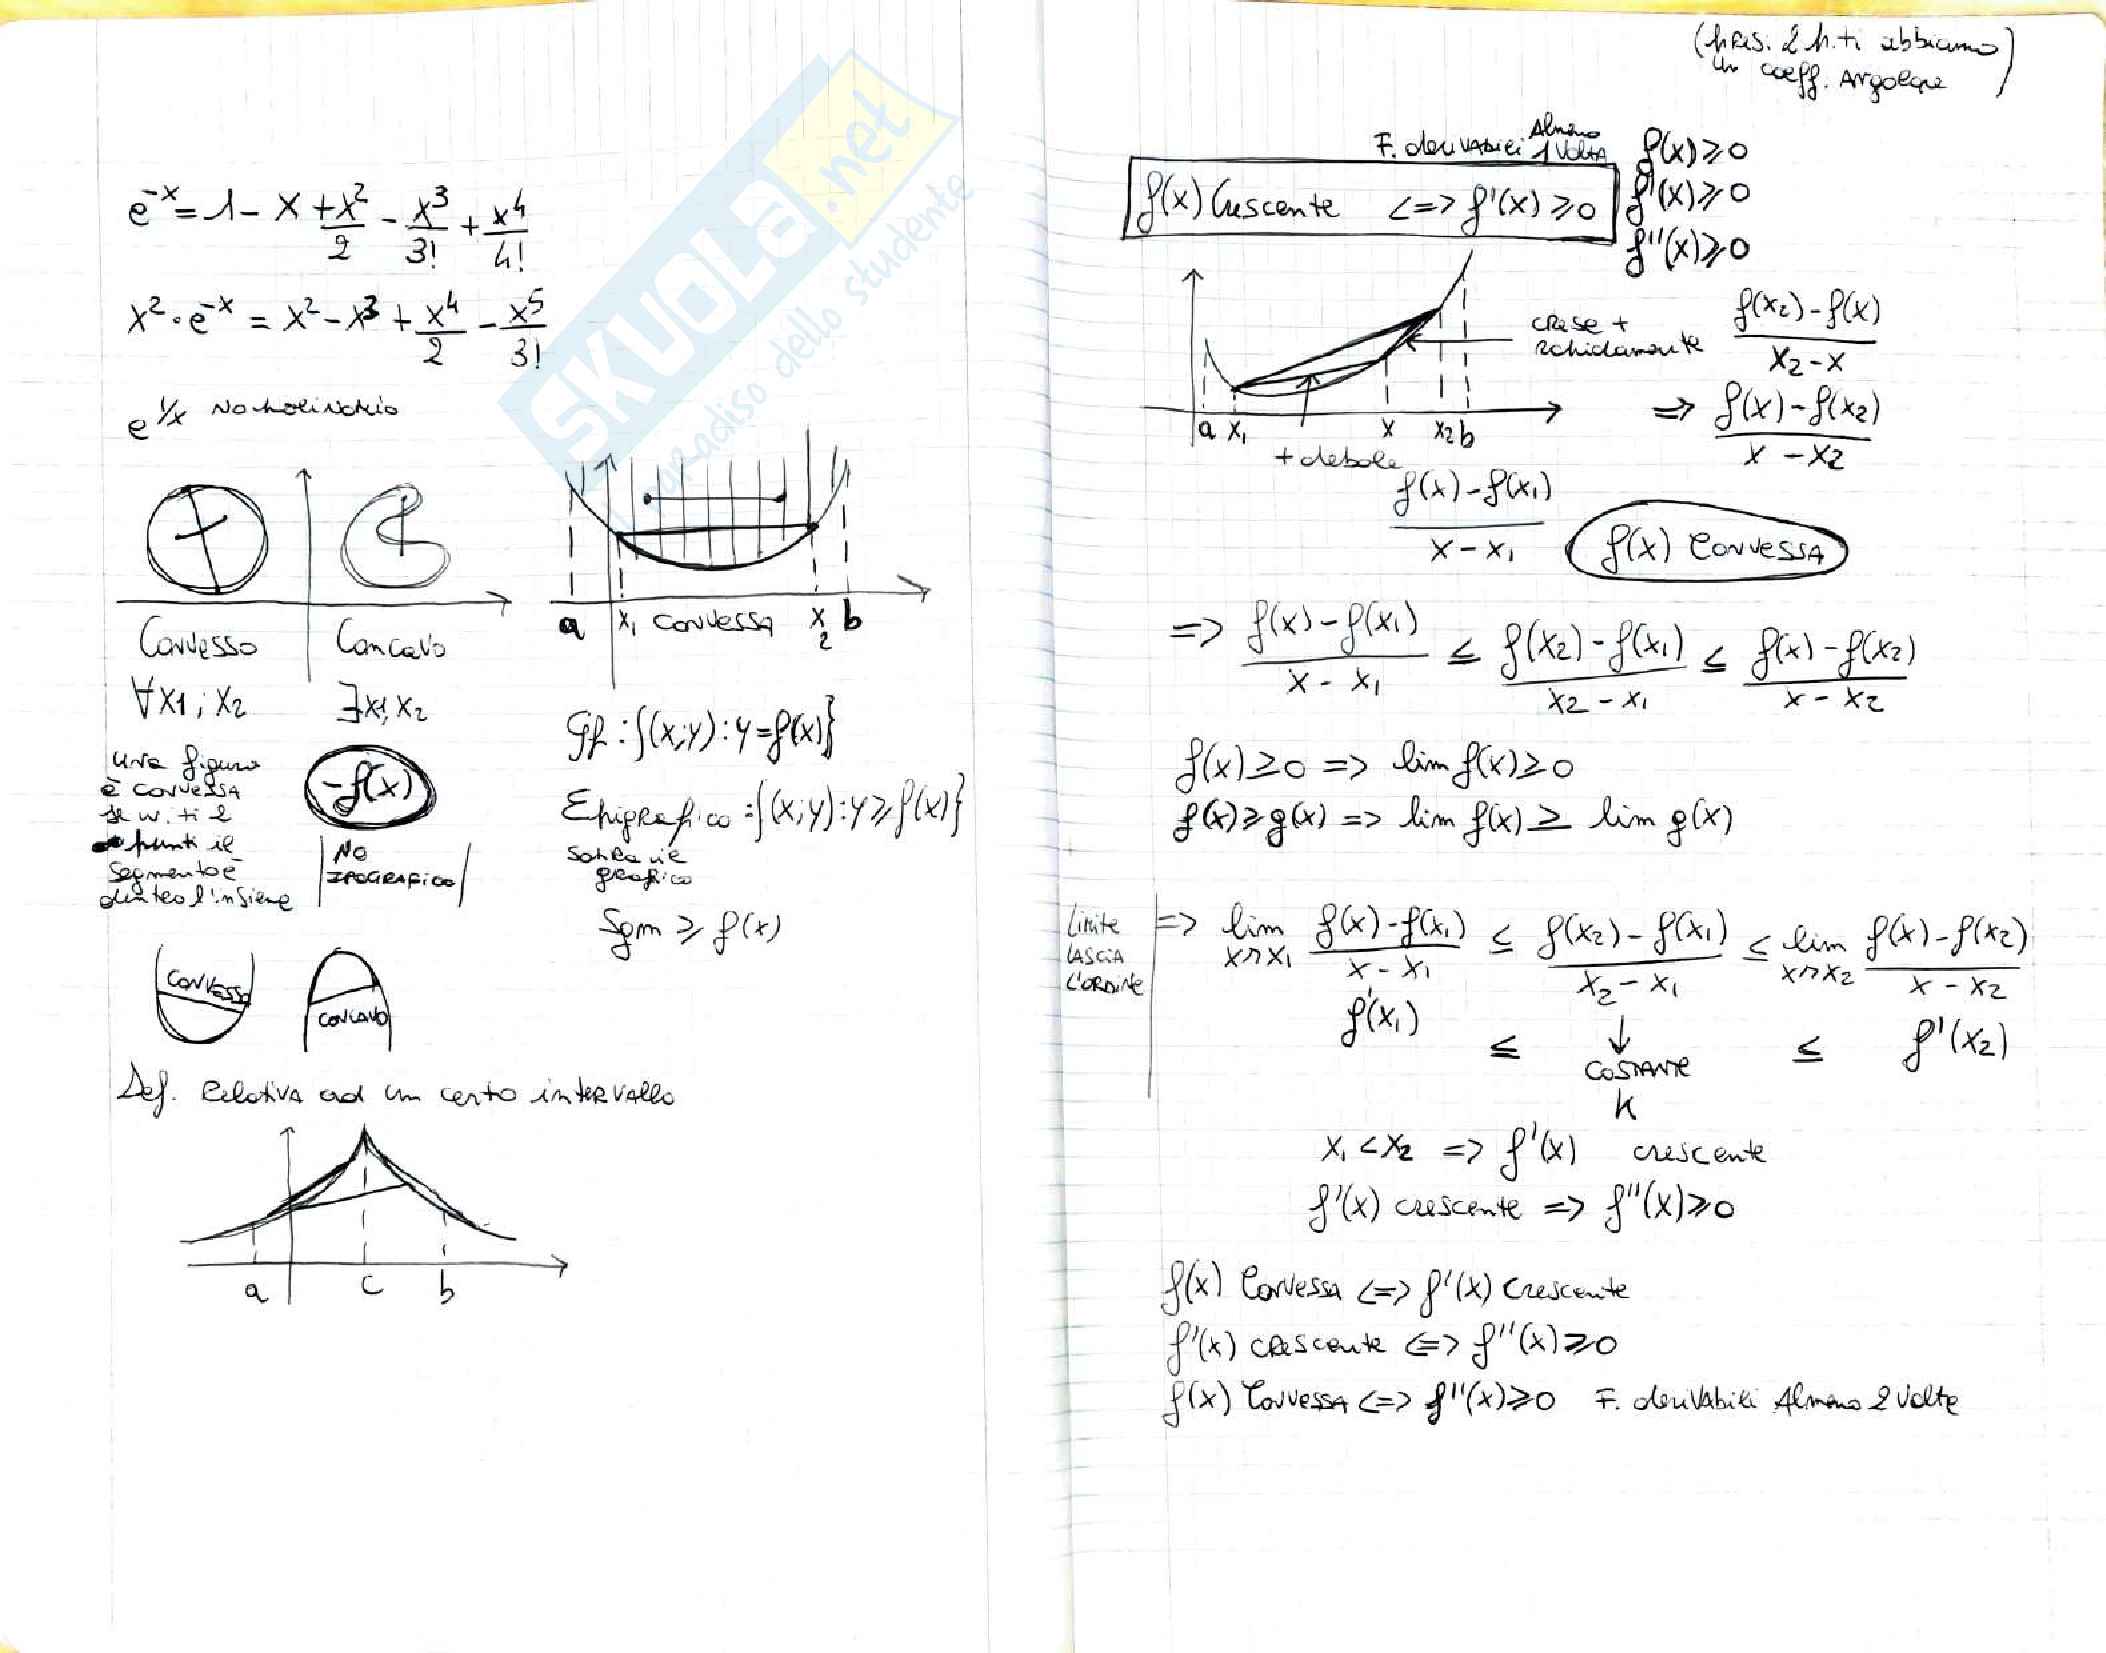 e^-x = 1 - x + x²/2 - x³/3! + x⁴/4!
x² · e^-x = x² - x³ + x⁴/2 - x⁵/3!
e^1/x No polinomio
Convesso Concavo
∀x1 ; x2 ∃x1, x2
una figura
è convessa
punti il
segmento è
dentro l'insieme
-f(x)
No
IPOGRAFICO
CONVESSO
CONCAVO
a x1 convessa x2 b
Gf : {(x;y) : y = f(x)}
Epigrafico : {(x;y) : y ≥ f(x)}
sopra il
grafico
Sgm ≥ f(x)
Def. Relativa ad un certo intervallo
a c b
SKUOLA.net
paradiso dello studente
(pres. 2 p.ti abbiamo
un coeff. Angolare)
F. derivabili Almeno 1 VOLTA
f(x) Crescente <=> f'(x) ≥ 0
f(x) ≥ 0
f'(x) ≥ 0
f''(x) ≥ 0
cresc +
rapidamente
f(x2) - f(x) / x2 - x
=> f(x) - f(x2) / x - x2
a x1 x x2 b
+ debole
f(x) - f(x1) / x - x1
f(x) Convessa
=> f(x) - f(x1) / x - x1 ≤ f(x2) - f(x1) / x2 - x1 ≤ f(x) - f(x2) / x - x2
f(x) ≥ 0 => lim f(x) ≥ 0
f(x) ≥ g(x) => lim f(x) ≥ lim g(x)
Limite
LASCIA
L'ORDINE
=> lim x→x1 f(x) - f(x1) / x - x1 ≤ f(x2) - f(x1) / x2 - x1 ≤ lim x→x2 f(x) - f(x2) / x - x2
f'(x1) ≤ ↓ ≤ f'(x2)
COSTANTE
K
x1 < x2 => f'(x) crescente
f'(x) crescente => f''(x) ≥ 0
f(x) Convessa <=> f'(x) Crescente
f'(x) crescente <=> f''(x) ≥ 0
f(x) Convessa <=> f''(x) ≥ 0 F. derivabili Almeno 2 Volte